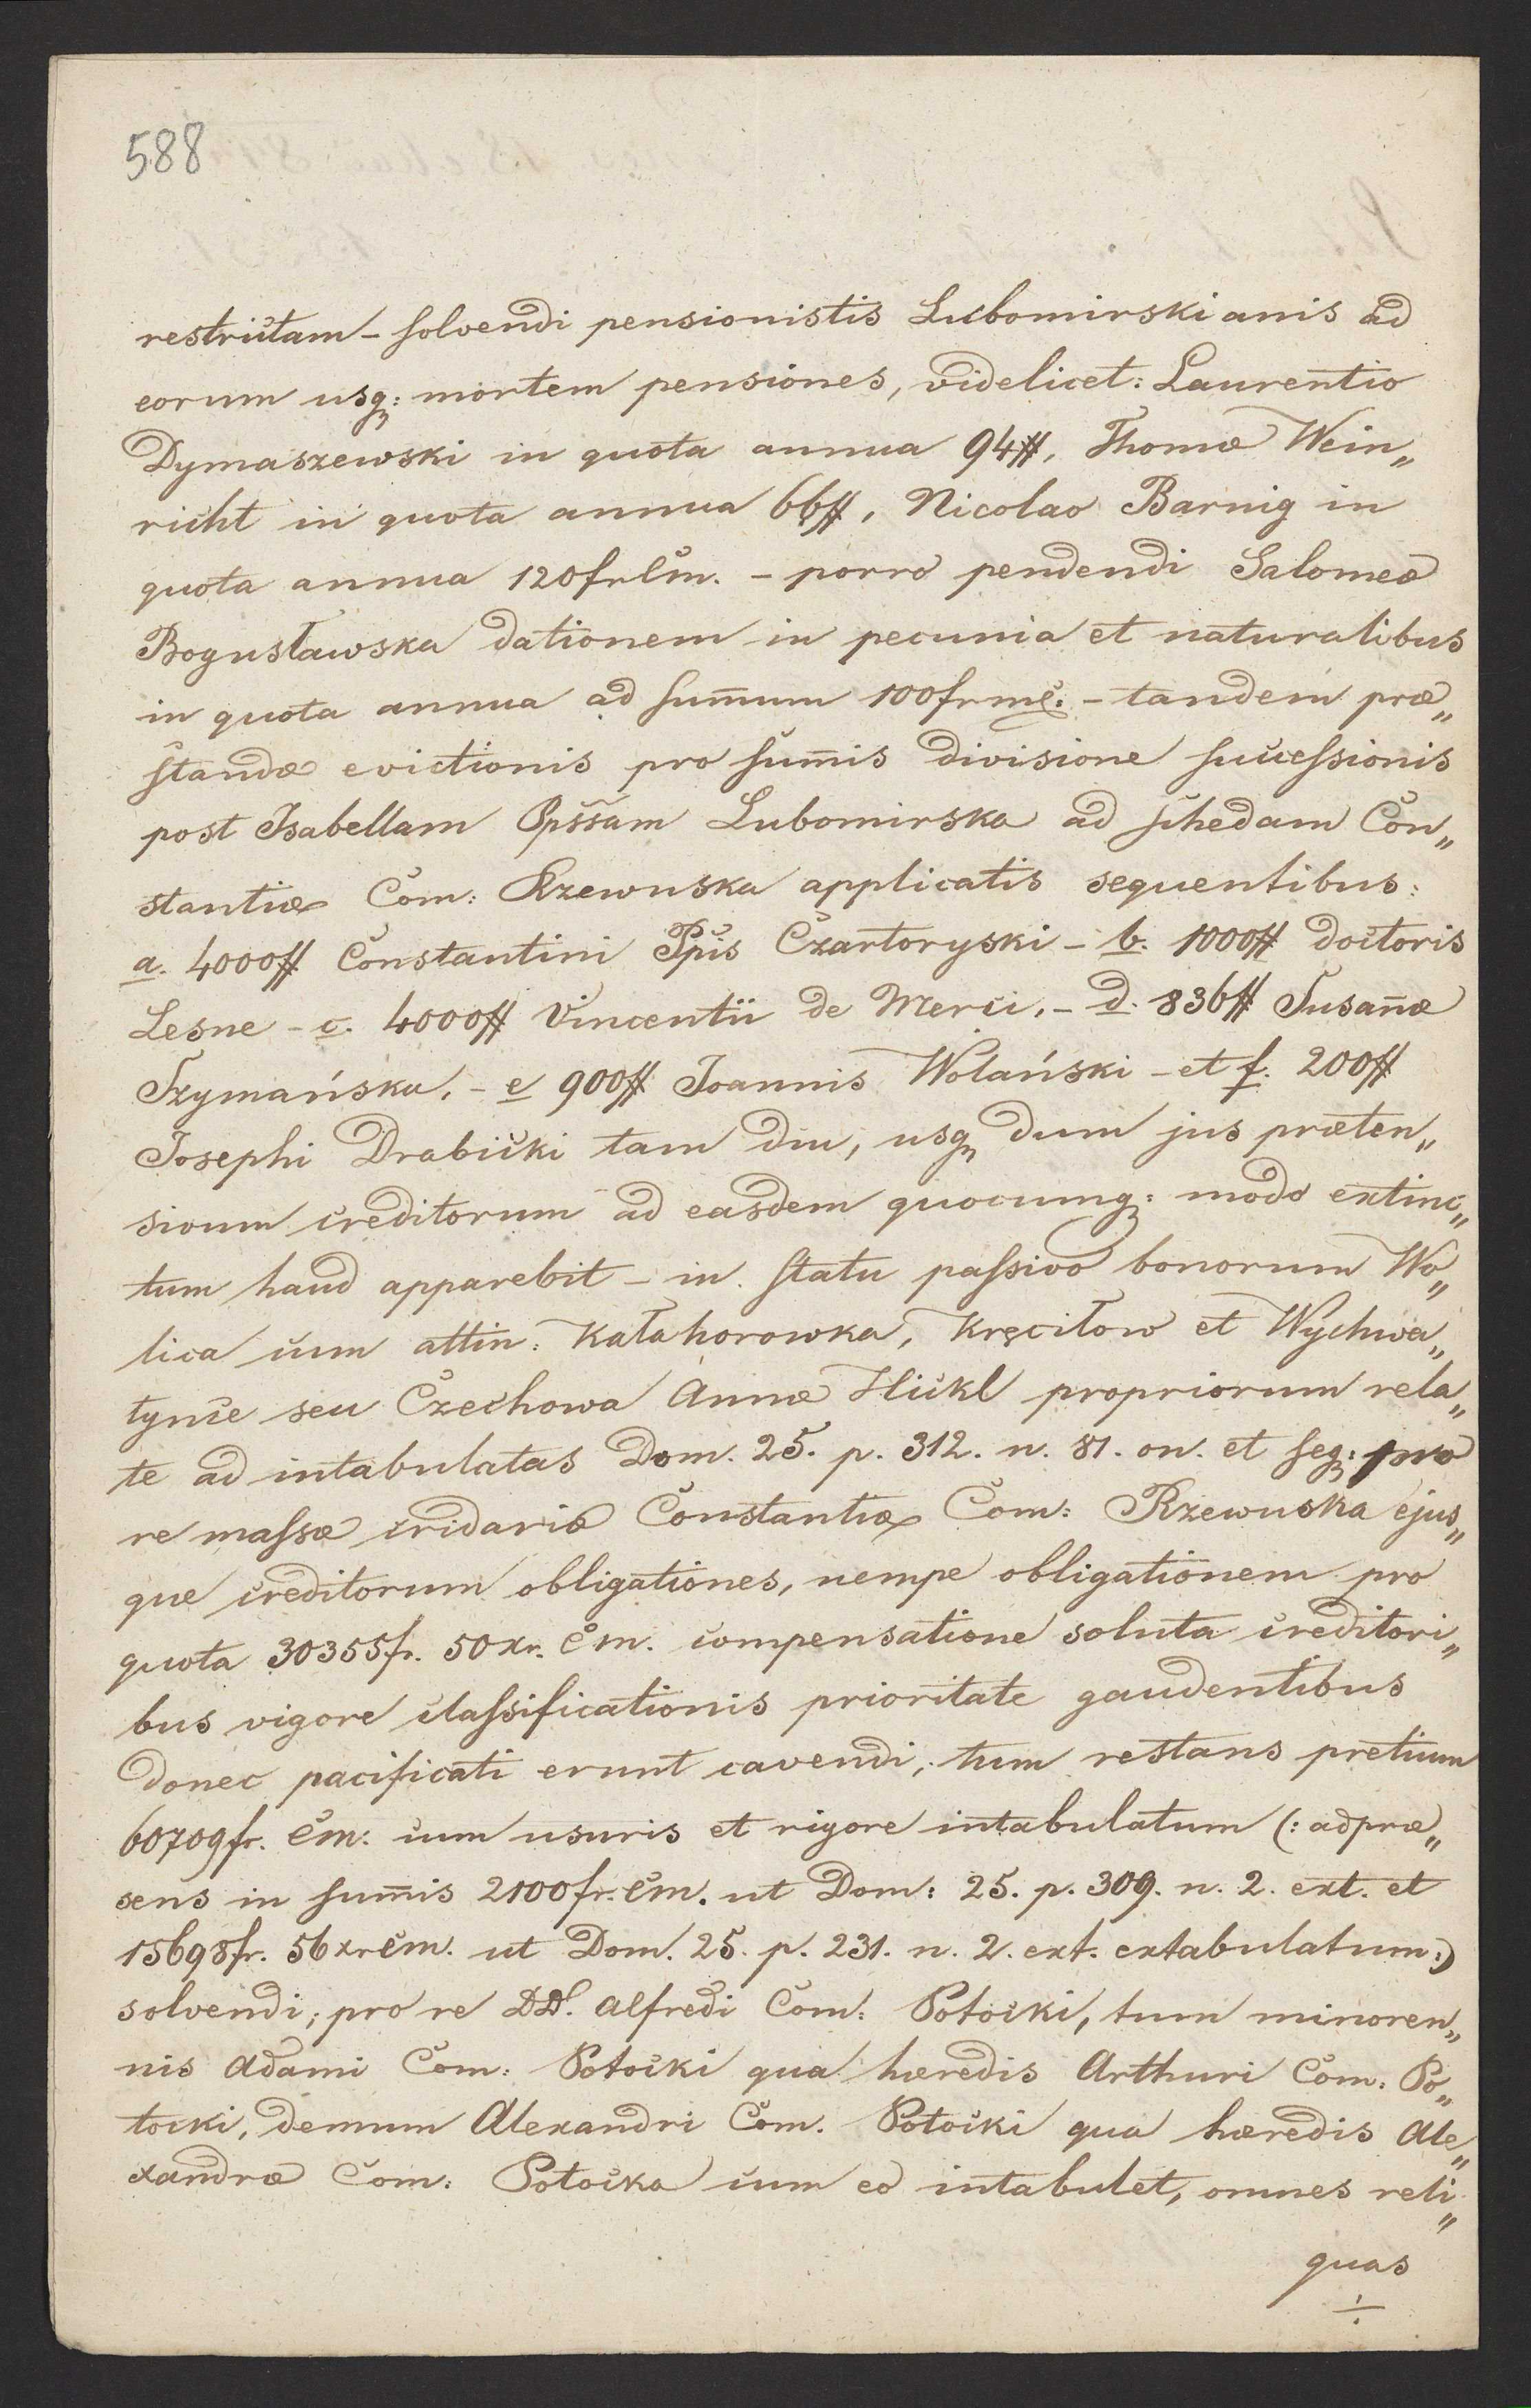 588
restrictam – solvendi pensionistis Lubomirskianis ad
eorum usq: mortem pensiones, videlicet: Laurentio
Dymaszewski in quota annua 94#, Thomæ Wein„
richt in quota annua 66#, Nicolao Barnig in
quota annua 120fr Cm. – porro pendendi Salomeæ
Bogusławska dationem in pecunia et naturalibus
in quota annua ad sum̄um 100fr mc. – tandem præ„
standæ evictionis pro sum̄is divisione successionis
post Isabellam Pp̄ssam Lubomirska ad schedam Con„
stantiæ Com: Rzewuska applicatis sequentibus:
a. 4000# Constantini Ppis Czartoryski – b. 1000# doctoris
Lesne – c. 4000# Vincentii de Merci. – d. 836# Susan̄æ
Szymańska. – e 900# Joannis Wolański – et f. 200#
Josephi Drabicki tam diu, usq dum jus præten„
sionum creditorum ad easdem quocumq: modo extinc„
tum haud apparebit – in statu passivo bonorum Wo„
lica cum attin: Kałahorowka, Kręciłow et Wychwa„
tynce seu Czechowa Annæ Hickl propriorum rela„
te ad intabulatas Dom. 25. p. 312. n. 81. on. et seq: pro
re massæ cridariæ Constantiæ Com: Rzewuska ejus„
que creditorum obligationes, nempe obligationem pro
quota 30355fr. 50xr. Cm. compensatione soluta creditori„
bus vigore classificationis prioritate gaudentibus
donec pacificati erunt cavendi, tum restans pretium
60709fr. Cm. cum usuris et rigore intabulatum (: ad præ„
sens in sum̄is 2100fr. Cm. ut Dom: 25. p. 309. n. 2. ext. et
15698fr. 56xr Cm. ut Dom. 25. p. 231. n. 2. ext. extabulatum :)
solvendi; pro re DD. Alfredi Com: Potocki, tum minoren„
nis Adami Com: Potocki qua hæredis Arthuri Com: Po„
tocki, demum Alexandri Com. Potocki qua hæredis Ale„
xandræ Com: Potocka cum eo intabulet, omnes reli„
quas